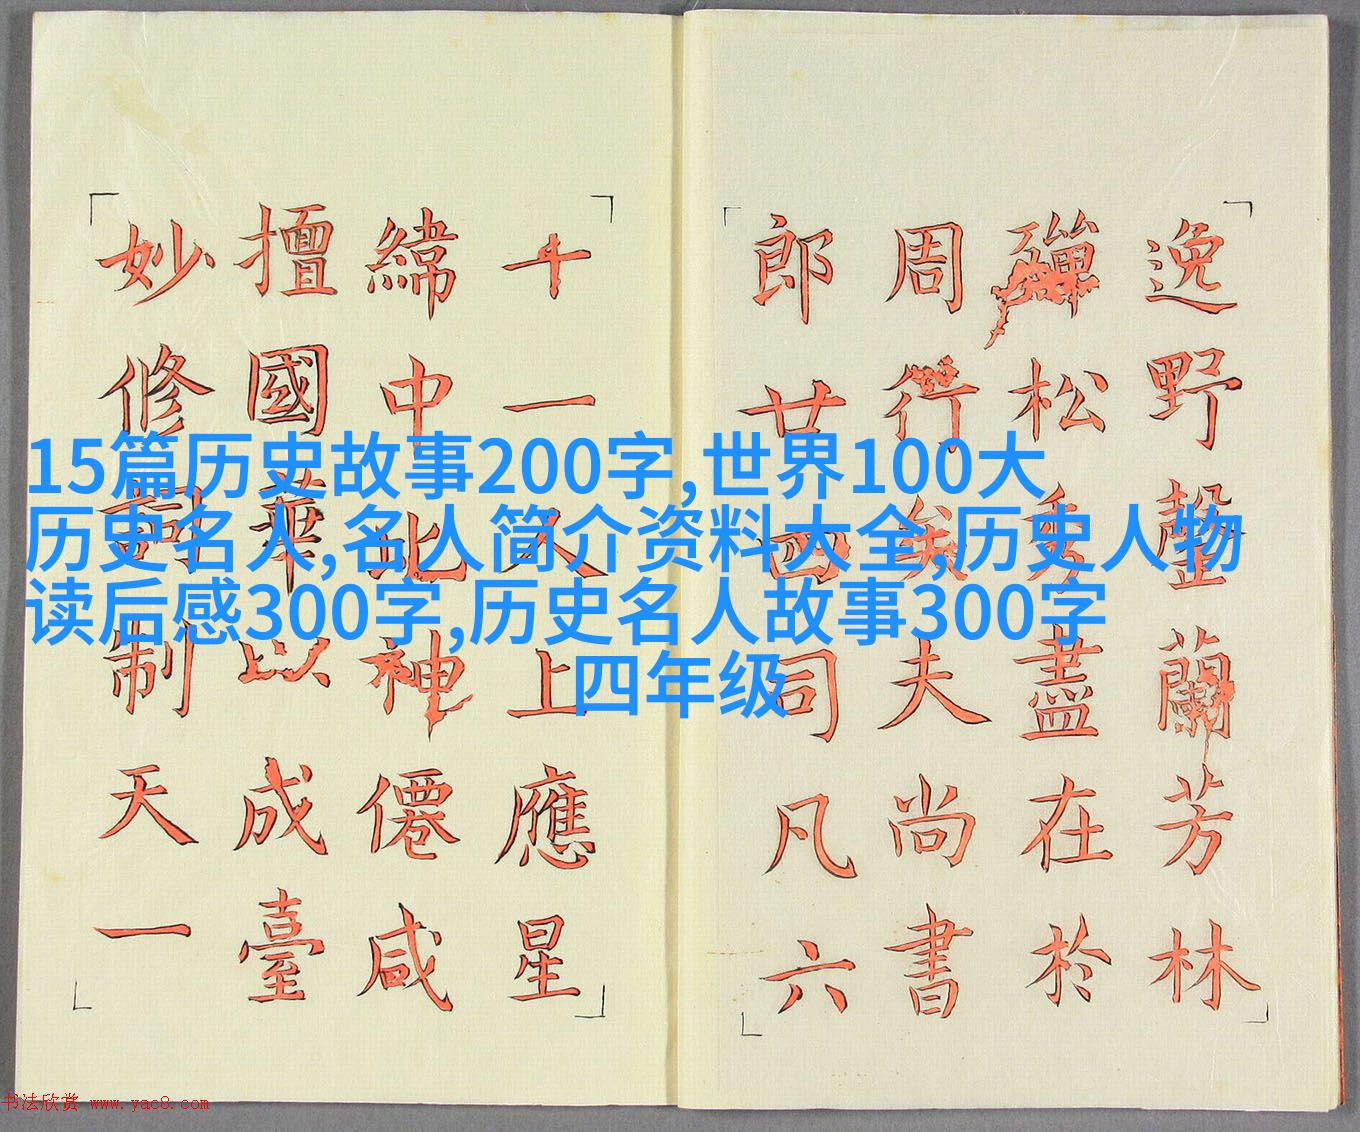 15篇历史故事200字,世界100大
历史名人,名人简介资料大全,历史人物
读后感300字,历史名人故事300字
四年级
逸野罄蘭芳林
殫松秀盡在於
周行矣夫尚書
郎廿四司凡六
十一人上應星
緯中比神僊咸
擅國華以成臺
妙修詞制天一
书法欣赏 www.yac8.com